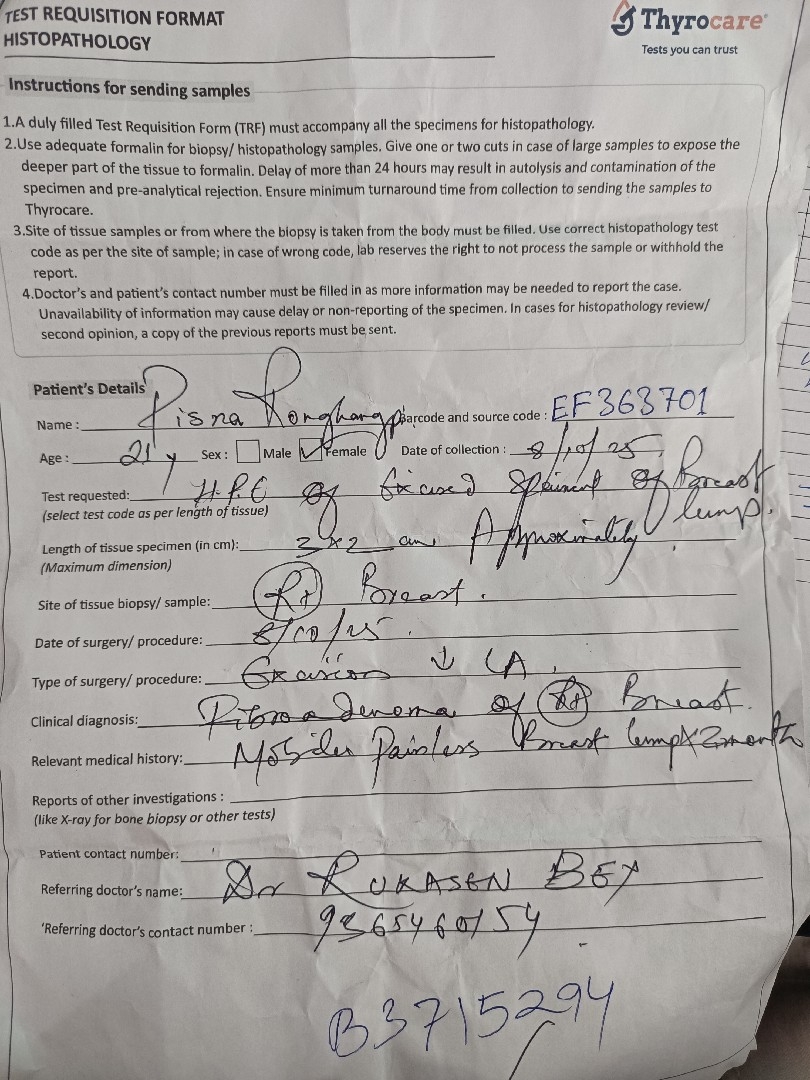 TEST REQUISITION FORMAT
HISTOPATHOLOGY
Thyrocare
Tests you can trust
Instructions for sending samples
1.A duly filled Test Requisition Form (TRF) must accompany all the specimens for histopathology.
2.Use adequate formalin for biopsy/ histopathology samples. Give one or two cuts in case of large samples to expose the
deeper part of the tissue to formalin. Delay of more than 24 hours may result in autolysis and contamination of the
specimen and pre-analytical rejection. Ensure minimum turnaround time from collection to sending the samples to
Thyrocare.
3.Site of tissue samples or from where the biopsy is taken from the body must be filled. Use correct histopathology test
code as per the site of sample; in case of wrong code, lab reserves the right to not process the sample or withhold the
report.
4.Doctor's and patient's contact number must be filled in as more information may be needed to report the case.
Unavailability of information may cause delay or non-reporting of the specimen. In cases for histopathology review/
second opinion, a copy of the previous reports must be sent.
Patient's Details
Name : Barcode and source code : EF363701
Age : 21 y Sex : Male Female Date of collection : 8/10/25
Test requested: H.P.E of Breast
(select test code as per length of tissue) lump.
Length of tissue specimen (in cm): 3x2 cm Approximately
(Maximum dimension)
Site of tissue biopsy/ sample: Rt Breast.
Date of surgery/ procedure: 8/10/25.
Type of surgery/ procedure: Excision ↓ LA.
Clinical diagnosis: Fibroadenoma of Rt Breast.
Relevant medical history: Painless Breast lump x 2 month
Reports of other investigations :
(like X-ray for bone biopsy or other tests)
Patient contact number:
Referring doctor's name: Dr RUKASEN BEY
'Referring doctor's contact number :
B3715294